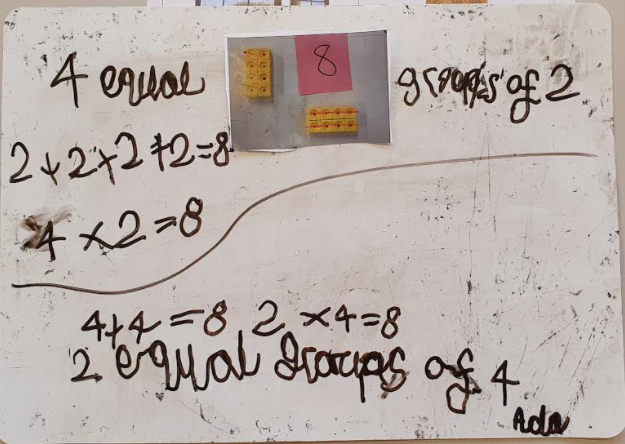 4 equal 8 groups of 2
2+2+2+2=8
4×2=8
4+4=8 2×4=8
2 equal groups of 4
Ada